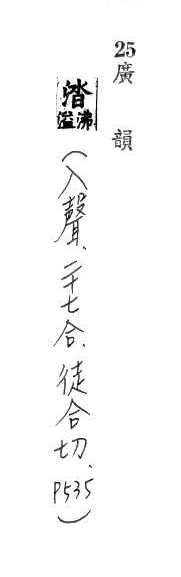 25廣韻
涾 沸溢
(入聲、二十七合、徒合切、P535)